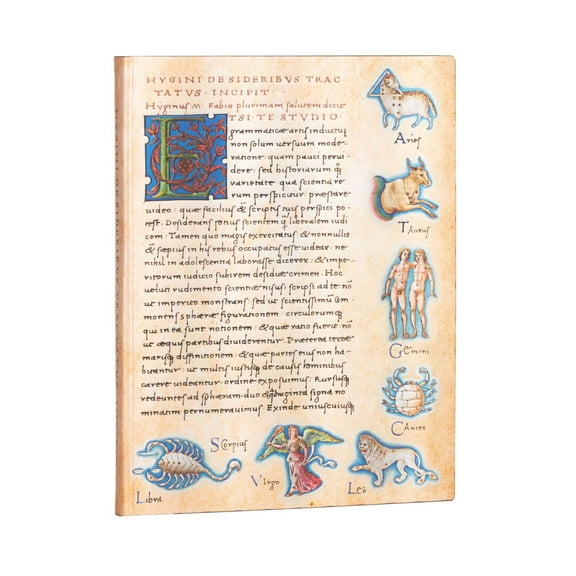 HYGINI·DE SIDERIBVS TRAC
TATVS·INCIPIT·
Hyginus M· Fabio plurimam salutem dicit
E TSI TE STVDIO·
grammaticæ artis inductũ
non solum versuum mode-
ratione: quam pauci pervi-
dere: sed historiarum q̃q̃
varietate: qua scientia re-
rum perspicitur: præstare
video: quæ facilius & scriptis tuis perspici po-
test. Desiderans potius scientem q̃ liberalem iudi
cem. Tamen quo magis exercitatus: & nonnullis
& sæpius in his rebus occupatus esse videar: ne
nihil in adolescentia laborasse dicerer: & impe-
ritorum iudicio subirem desidiæ crimen. Hoc
veluti rudimento scientiæ nisus: scripsi ad te nõ
ut imperito monstrans: sed ut scientissimũ com-
monens sphæræ figurationem: circulorumq̃
qui in ea sunt notionem: & quæ ratio fuerit: nõ
ut æquis partibus dividerentur: Præterea terræ
marisq̃ diffinitionem: & quæ partes eius non ha-
bitantur: ut multis iustisq̃ de causis hominibus
carere videantur: ordine exposuimus. Rursusq̃
redeuntes ad sphæram: duo & signa no
minatim pernumeravimus. Exinde uniuscuiusq̃
Aries
Taurus
Gemini
Cancer
Leo
Virgo
Scorpius
Libra